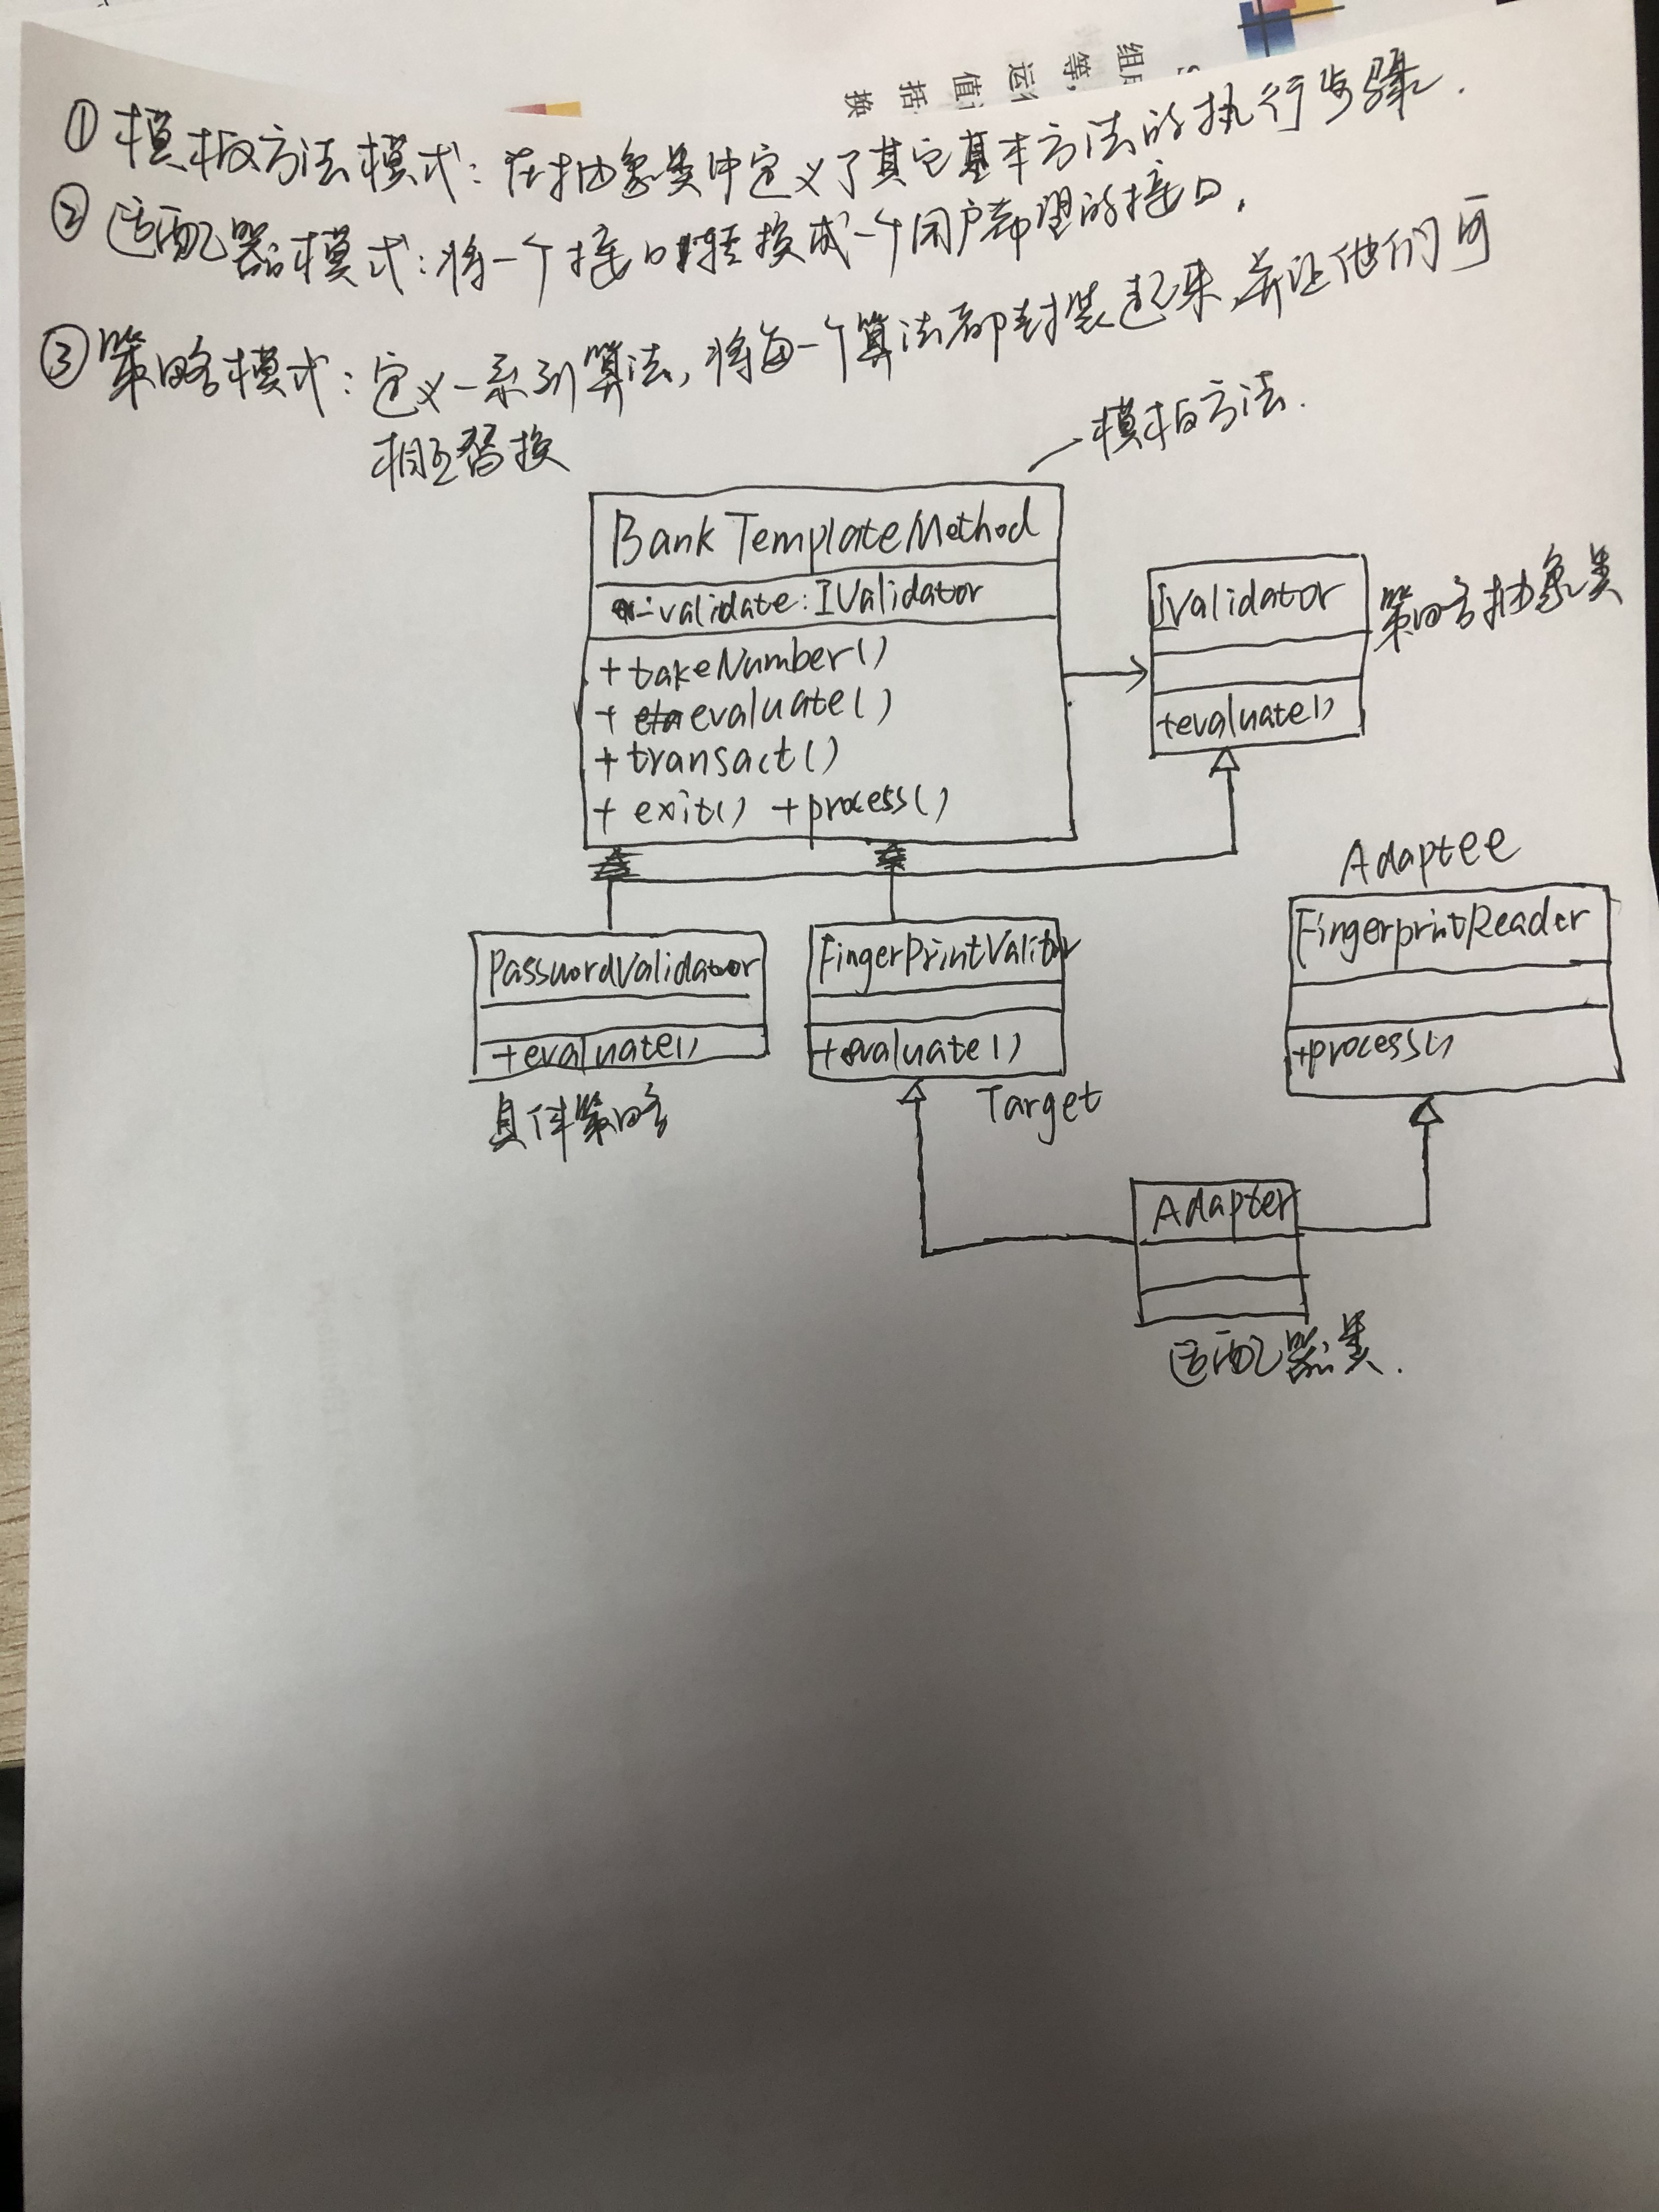 ①模板方法模式：在抽象类中定义了其它基本方法的执行步骤.
②适配器模式：将一个接口转换成一个用户希望的接口.
③策略模式：定义一系列算法,将每一个算法都封装起来,并让他们可
相互替换
模板方法.
Bank TemplateMethod
-validate:IValidator
+takeNumber()
+evaluate()
+transact()
+ exit() +process()
IValidator
+evaluate()
策略抽象类
PasswordValidator
+evaluate()
具体策略
FingerPrintValitor
+evaluate()
Target
Adaptee
FingerprintReader
+process()
Adapter
适配器类.
组
等,
运
值
括
换